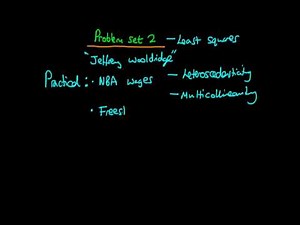 Problem set 2 – Least squares
"Jeffrey Wooldridge"
Practical: • NBA wages – Heteroscedasticity
– Multicollinearity
• Frees